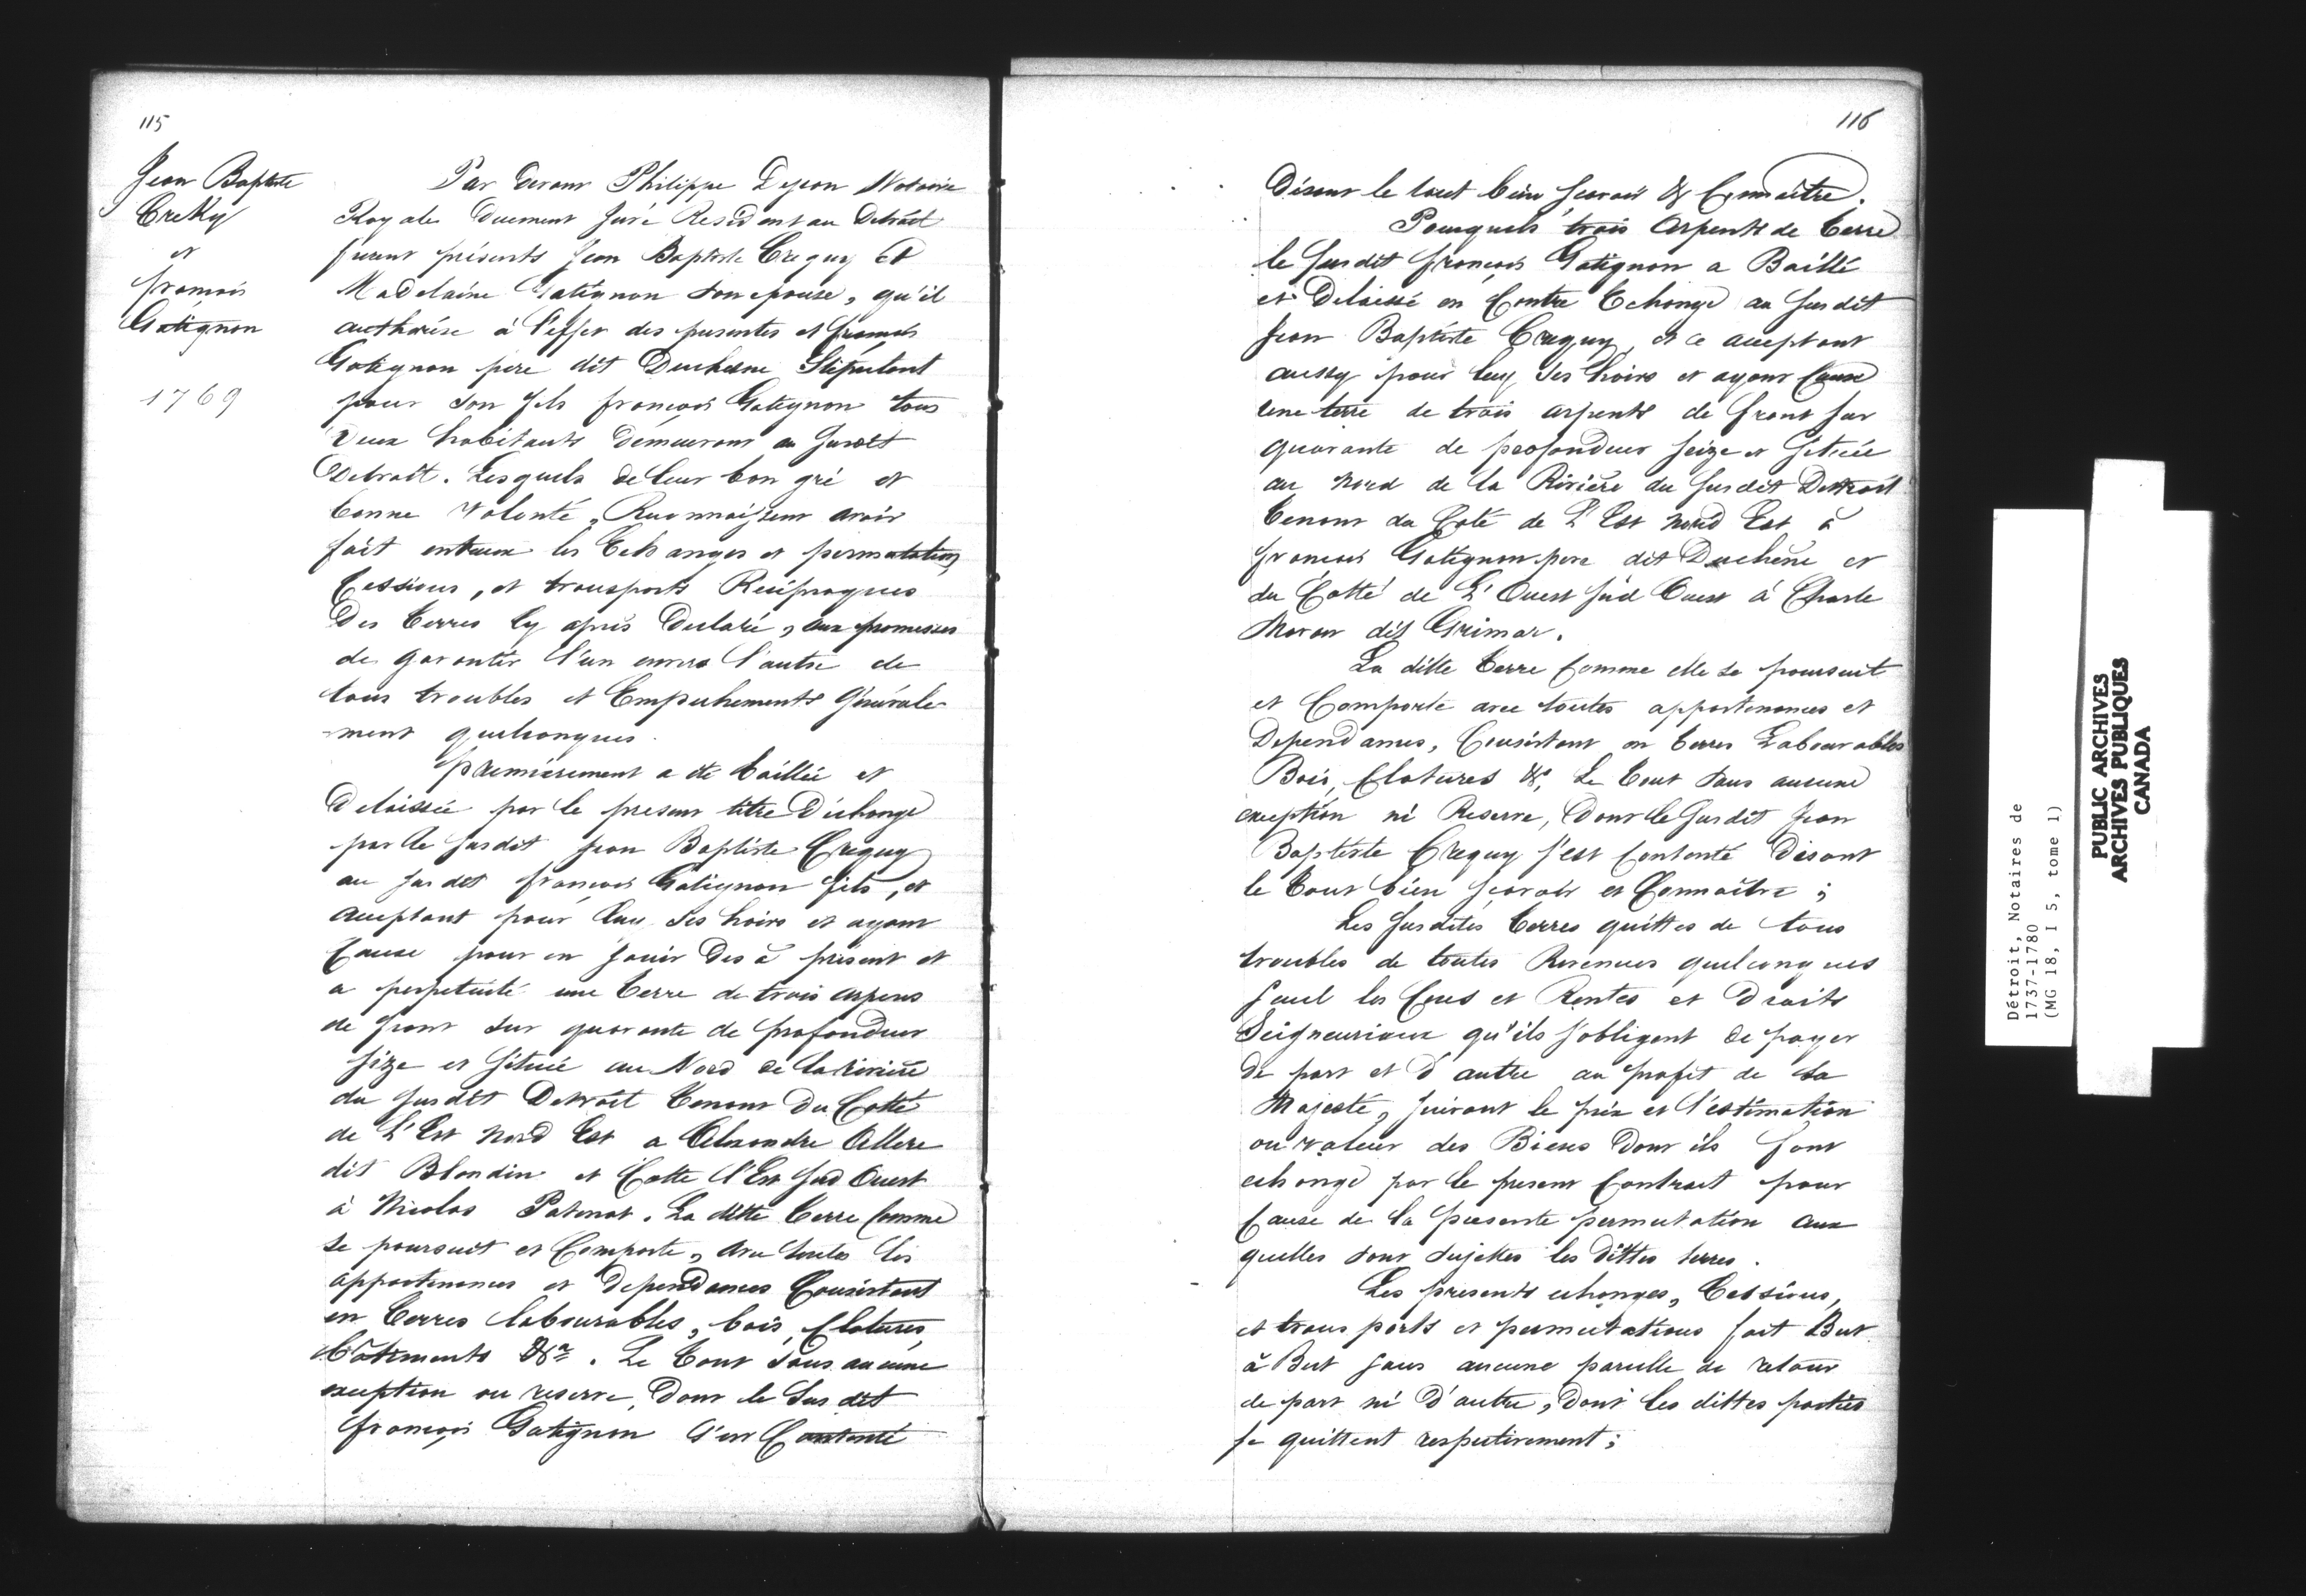 115
Jean Baptiste
Creky
et
francois
Gatignon
1769
Par devant Philippe Dejean Notaire
Royale Duement Juré Resident au Detroit
furent présents Jean Baptiste Creguy Et
Madelaine Gatignon son epouse, qu'il
authorise à l'effet des presentes et francois
Gatignon pere dit Duchesne Stipulant
pour son fils francois Gatignon tous
Deux habitants Demeurant au susdit
Detroit. Lesquels de leur bon gré et
bonne volonté, Reconnoissent avoir
fait entreux les Echanges et permutations,
Cessions, et transports Reciproques
Des Terres Cy après Declaré, aux promesses
de garantir l'un envers l'autre de
tous troubles et Empechements générale-
-ment quelconques.
Premièrement a été baillée et
Delaissée par le present titre D'échange
par le susdit Jean Baptiste Creguy
au susdit francois Gatignon fils, et
aceptant pour luy ses hoirs et ayant
Cause pour en jouir des à present et
a perpetuité une Terre de trois arpens
de front sur quarante de profondeur
size et située au Nord de la riviere
du susdit Detroit Tenant Du Cotté
de L'Est Nord Est a Alexandre Ellere
dit Blondin et Cotte l'Est Sud Ouest
à Nicolas Patenot. La ditte Terre Comme
se poursuit et Comporte, avec toutes les
appartenances et Dependances Consistant
en Terres labourables, bois, Clotures,
Bâtiments &a. Le Tout sans aucune
exception ou reserve, Dont le Sus dit
francois Gatignon s'est Contenté
116
Disant le tout bien scavoir & Connaitre.
Pourquels trois Arpents de Terre
le susdit francois Gatignon a Baillé
et Delaissé en Contre Echange au susdit
Jean Baptiste Creguy, et ce aceptant
aussy pour luy, ses hoirs et ayant Cause
une terre de trois arpents de front sur
quarante de profondeur seize et Située
au Nord de la Rivière du susdit Detroit
Tenant du Coté de L'Est Nord Est à
francois Gatignon pere dit Duchêne et
du Cotté de L'Ouest Sud Ouest à Charle
Moran dit Grimar.
La ditte Terre Comme elle se poursuit
et Comporte avec toutes appartenances et
Dependances, Consistant en terres Labourables
Bois, Clotures &c, Le Tout sans aucune
exception ni Reserve, Dont le susdit Jean
Baptiste Creguy s'est Contenté Disant
le Tout bien sçavoir et Connaître ;
Les susdites Terres quittes de tous
troubles de toutes Revenues quelconques
sauf les Cens et Rentes et Droits
Seigneuriaux qu'ils s'obligent de payer
De part et d'autre au profit de Sa
Majesté, suivant le prix et l'estimation
ou valeur des Biens Dont ils font
echange par le present Contract pour
Cause de la presente permutation aux
quelles sont sujettes les dittes terres.
Les presents echanges, Cessions,
et transports et permutations fait But
à But sans aucune parcelle de retour
de part ni D'autre, Dont les dittes parties
se quittent respectivement ;
Détroit, Notaires de
1737-1780
(MG 18, I 5, tome 1)
PUBLIC ARCHIVES
ARCHIVES PUBLIQUES
CANADA